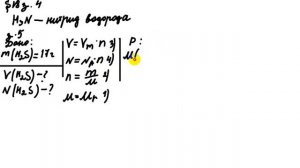 §18 з. 4
H₃N – нитрид водорода
з. 5
Дано:
m(H₂S)=17г
V(H₂S)–?
N(H₂S)–?
V=Vₘ·n 3)
N=Nₐ·n 4)
n=m/μ 2)
μ=μᵣ 1)
Р:
μ(